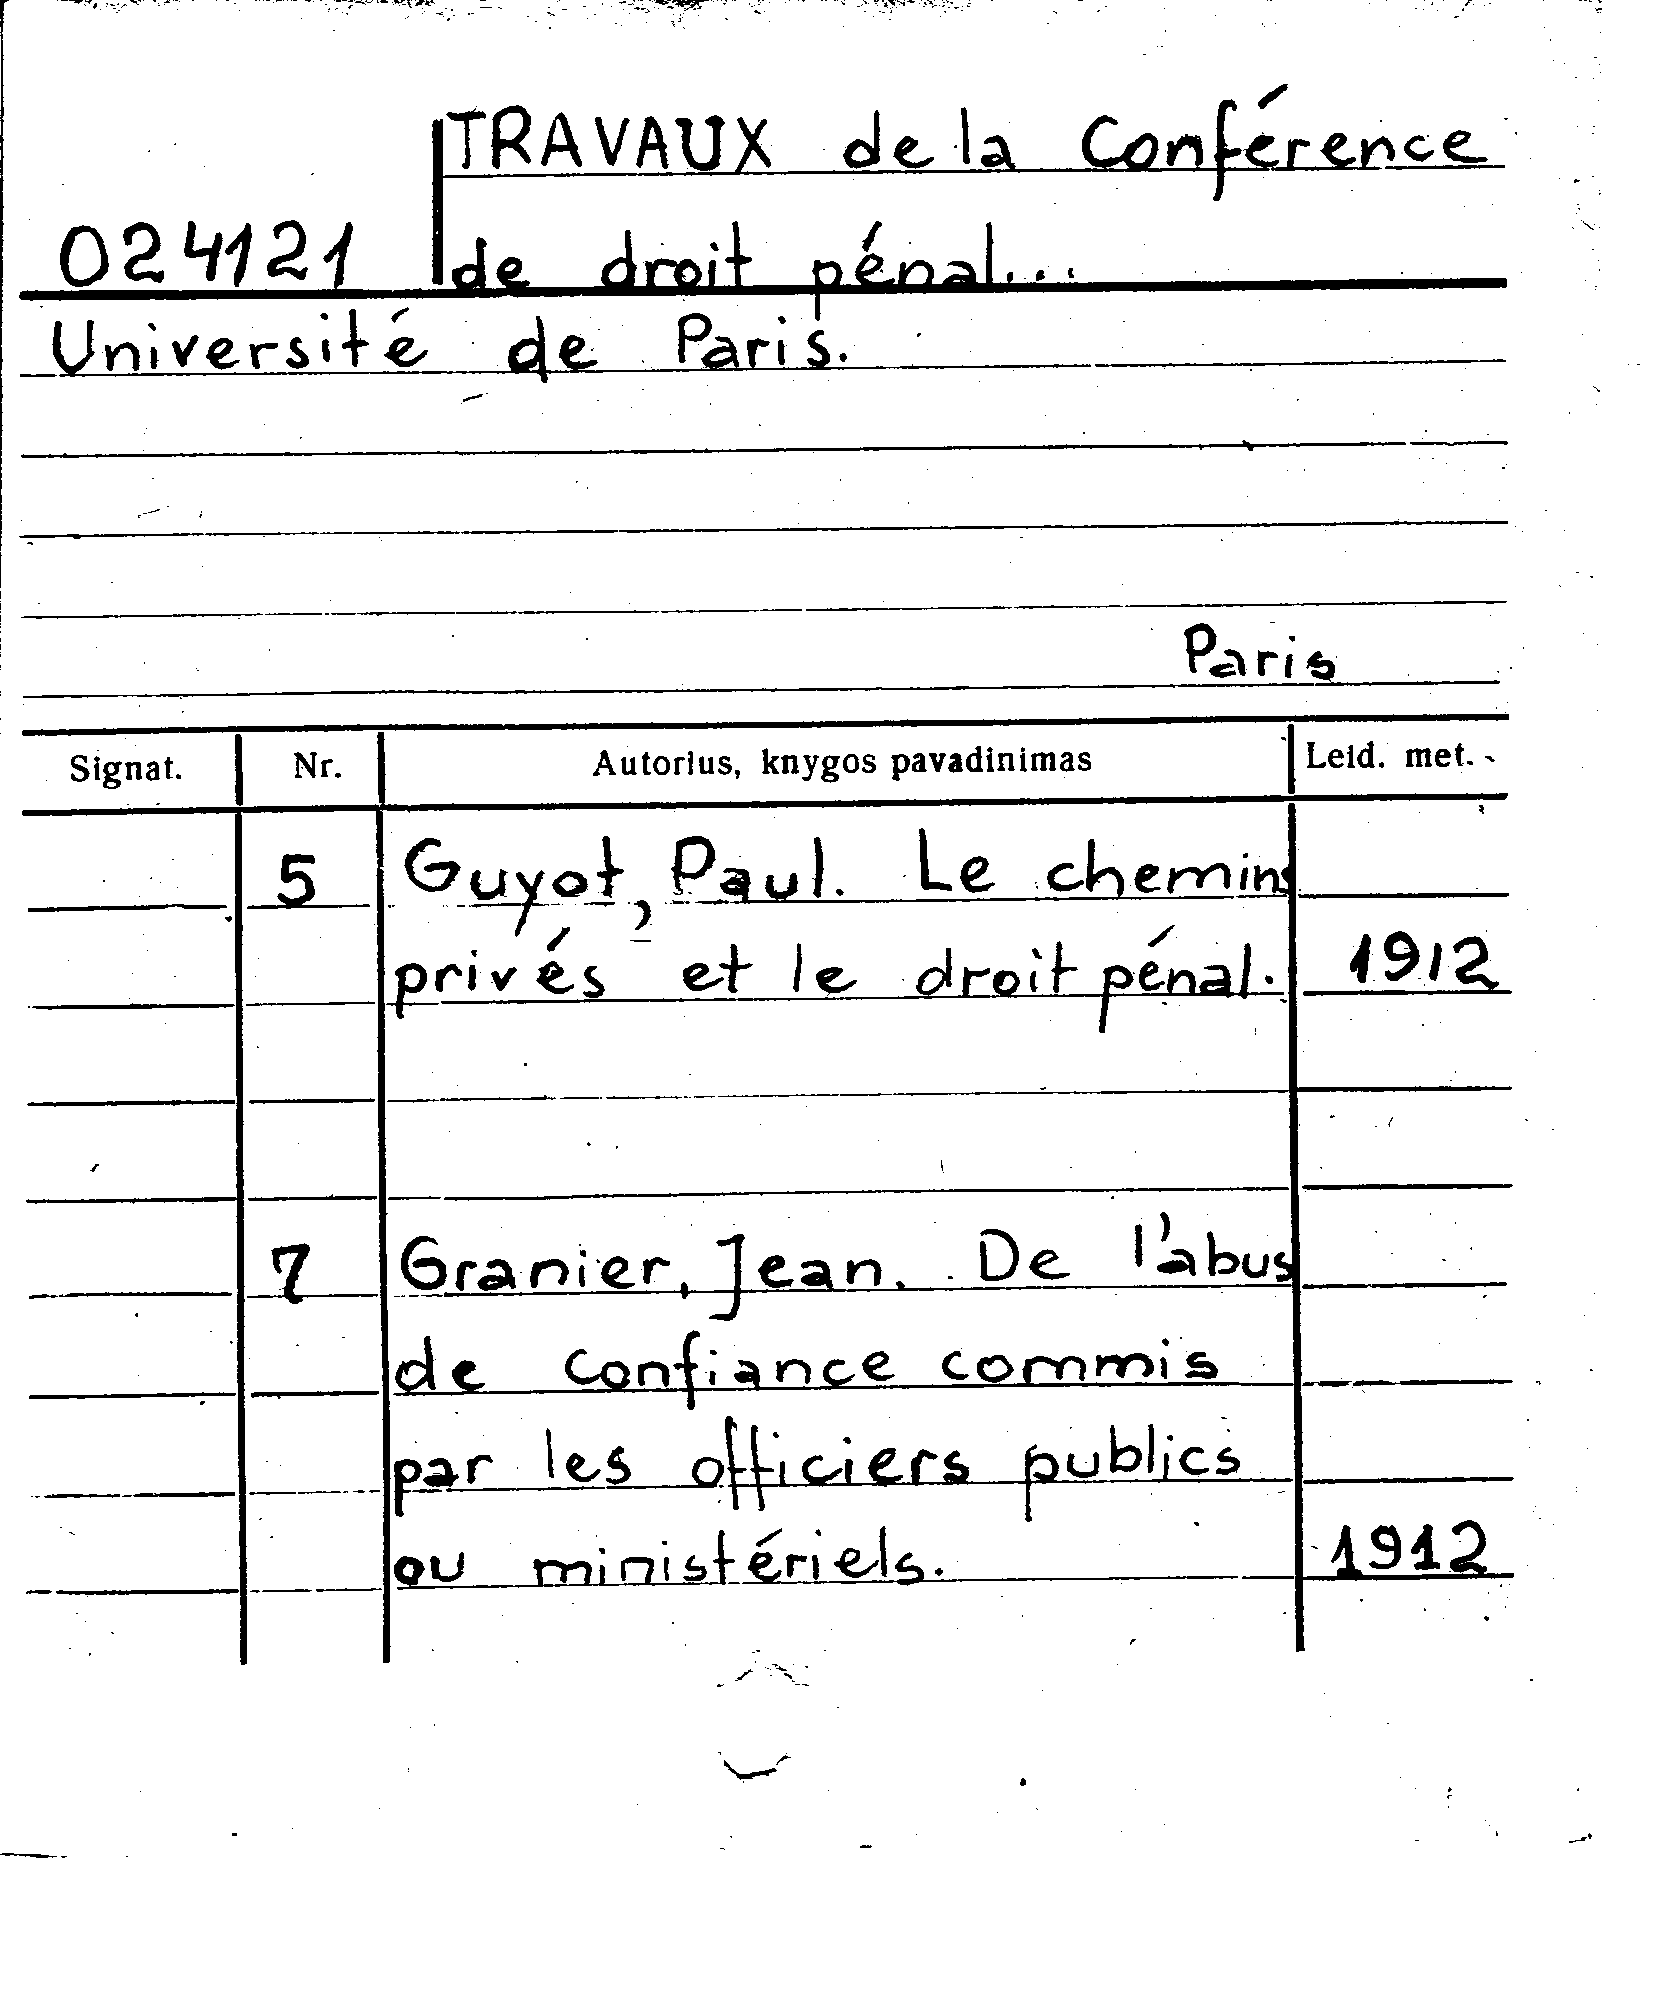 TRAVAUX de la Conférence
024121 de droit pénal...
Université de Paris.
Paris
Signat. Nr. Autorius, knygos pavadinimas Leid. met.
5 Guyot, Paul. Le chemins
privés et le droit pénal. 1912
7 Granier, Jean. De l'abus
de confiance commis
par les officiers publics
ou ministériels. 1912